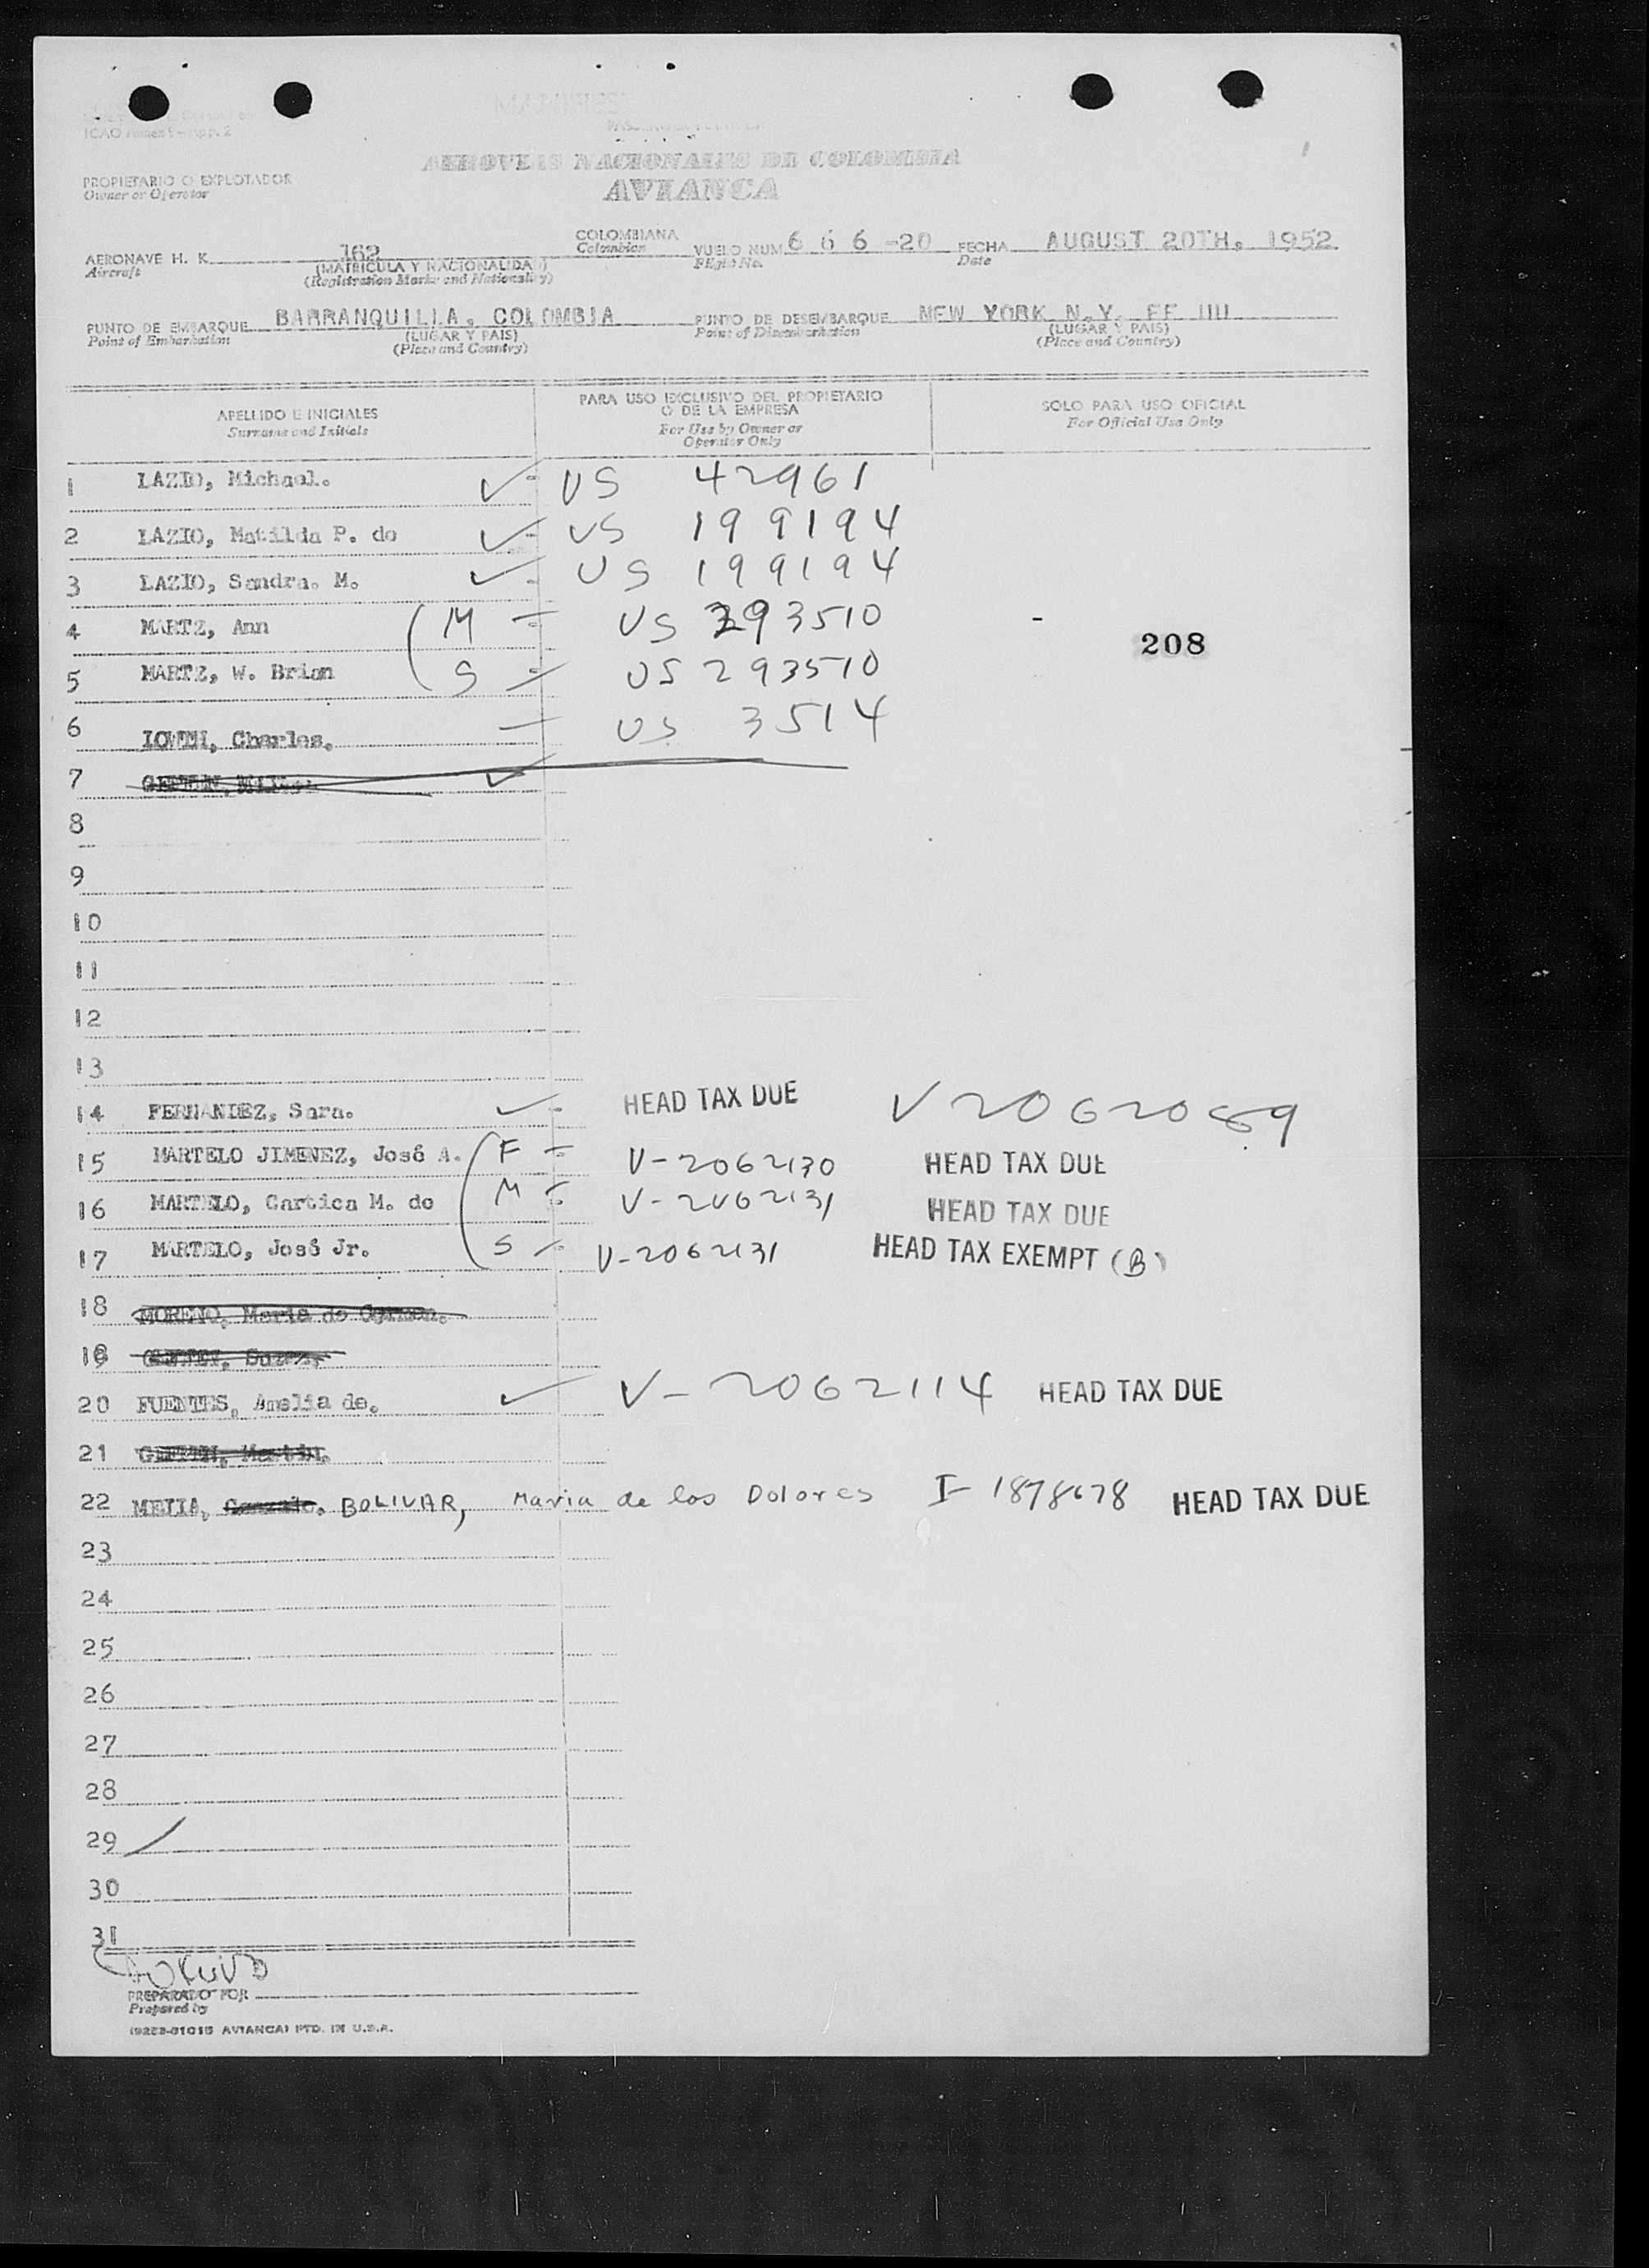 PROPIETARIO O EXPLOTADOR
Owner or Operator
AEROVIAS NACIONALES DE COLOMBIA
AVIANCA
AERONAVE H. K. 162 COLOMBIANA VUELO NUM 6 6 6 -20 FECHA AUGUST 20TH. 1952
Aircraft (MATRICULA Y NACIONALIDAD) Colombian Flight No. Date
(Registration Marks and Nationality)
PUNTO DE EMBARQUE BARRANQUILLA, COLOMBIA PUNTO DE DESEMBARQUE NEW YORK N.Y. EE UU
Point of Embarkation (LUGAR Y PAIS) Point of Disembarkation (LUGAR Y PAIS)
(Place and Country) (Place and Country)
APELLIDO E INICIALES PARA USO EXCLUSIVO DEL PROPIETARIO SOLO PARA USO OFICIAL
Surname and Initials O DE LA EMPRESA For Official Use Only
For Use by Owner or
Operator Only
1 LAZIO, Michael. ✓ US 42961
2 LAZIO, Matilda P. de ✓ US 199194
3 LAZIO, Sandra. M. ✓ US 199194
4 MARTZ, Ann M US 293510
208
5 MARTZ, W. Brian S US 293510
6 Charles. US 3514
7 ✓
8
9
10
11
12
13
14 FERNANDEZ, Sara. ✓ HEAD TAX DUE V2062089
15 MARTELO JIMENEZ, José A. F V-2062130 HEAD TAX DUE
16 MARTELO, Cartica M. de M V-2062131 HEAD TAX DUE
17 MARTELO, José Jr. S V-2062131 HEAD TAX EXEMPT (B)
18 MORENO, Maria de Carmen.
19
20 FUENTES, Amelia de. ✓ V-2062114 HEAD TAX DUE
21
22 MEJIA, BOLIVAR, Maria de los Dolores I-1878678 HEAD TAX DUE
23
24
25
26
27
28
29
30
31
PREPARADO POR
Prepared by
AVIANCA) PTD. IN U.S.A.